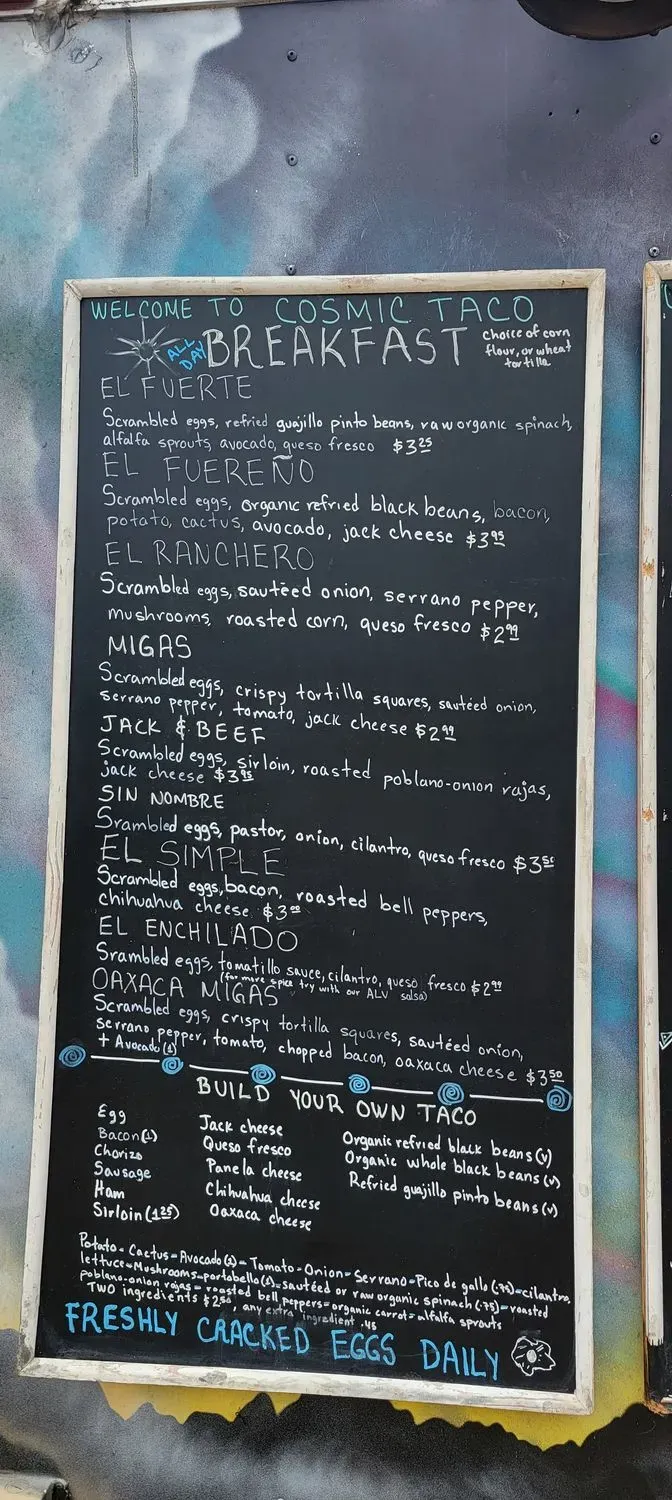 WELCOME TO COSMIC TACO
ALL DAY BREAKFAST
choice of corn
flour, or wheat
tortilla
EL FUERTE
Scrambled eggs, refried guajillo pinto beans, raw organic spinach,
alfalfa sprouts, avocado, queso fresco $3.25
EL FUEREÑO
Scrambled eggs, organic refried black beans, bacon,
potato, cactus, avocado, jack cheese $3.95
EL RANCHERO
Scrambled eggs, sautéed onion, serrano pepper,
mushrooms, roasted corn, queso fresco $2.99
MIGAS
Scrambled eggs, crispy tortilla squares, sautéed onion,
serrano pepper, tomato, jack cheese $2.99
JACK & BEEF
Scrambled eggs, sirloin, roasted poblano-onion rajas,
jack cheese $3.95
SIN NOMBRE
Srambled eggs, pastor, onion, cilantro, queso fresco $3.50
EL SIMPLE
Scrambled eggs, bacon, roasted bell peppers,
chihuahua cheese $3.00
EL ENCHILADO
Srambled eggs, tomatillo sauce, cilantro, queso fresco $2.99
(for more spice try with our ALV salsa)
OAXACA MIGAS
Scrambled eggs, crispy tortilla squares, sautéed onion,
serrano pepper, tomato, chopped bacon, oaxaca cheese $3.50
+ Avocado (1)
BUILD YOUR OWN TACO
Egg
Bacon (1)
Chorizo
Sausage
Ham
Sirloin (1.25)
Jack cheese
Queso fresco
Panela cheese
Chihuahua cheese
Oaxaca cheese
Organic refried black beans (v)
Organic whole black beans (v)
Refried guajillo pinto beans (v)
Potato - Cactus - Avocado (1) - Tomato - Onion - Serrano - Pico de gallo (.75) - cilantro,
lettuce - Mushrooms - portobello (1) - sautéed or raw organic spinach (.75) - roasted
poblano-onion rajas - roasted bell peppers - organic carrot - alfalfa sprouts
Two ingredients $2.50, any extra ingredient .45
FRESHLY CRACKED EGGS DAILY